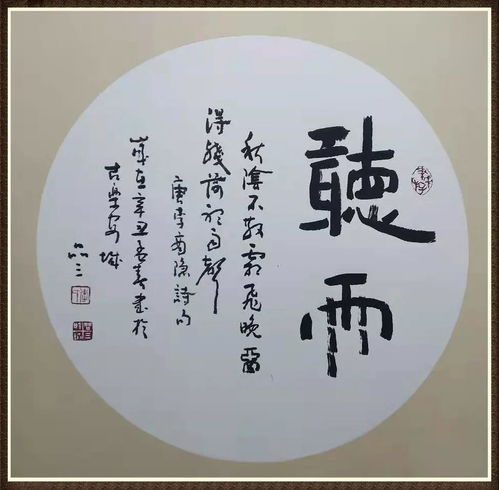 聽雨
秋陰不散霜飛晚留
得殘荷聽雨聲
唐李商隱詩句
歲在辛丑春書於
古樂安城
品三